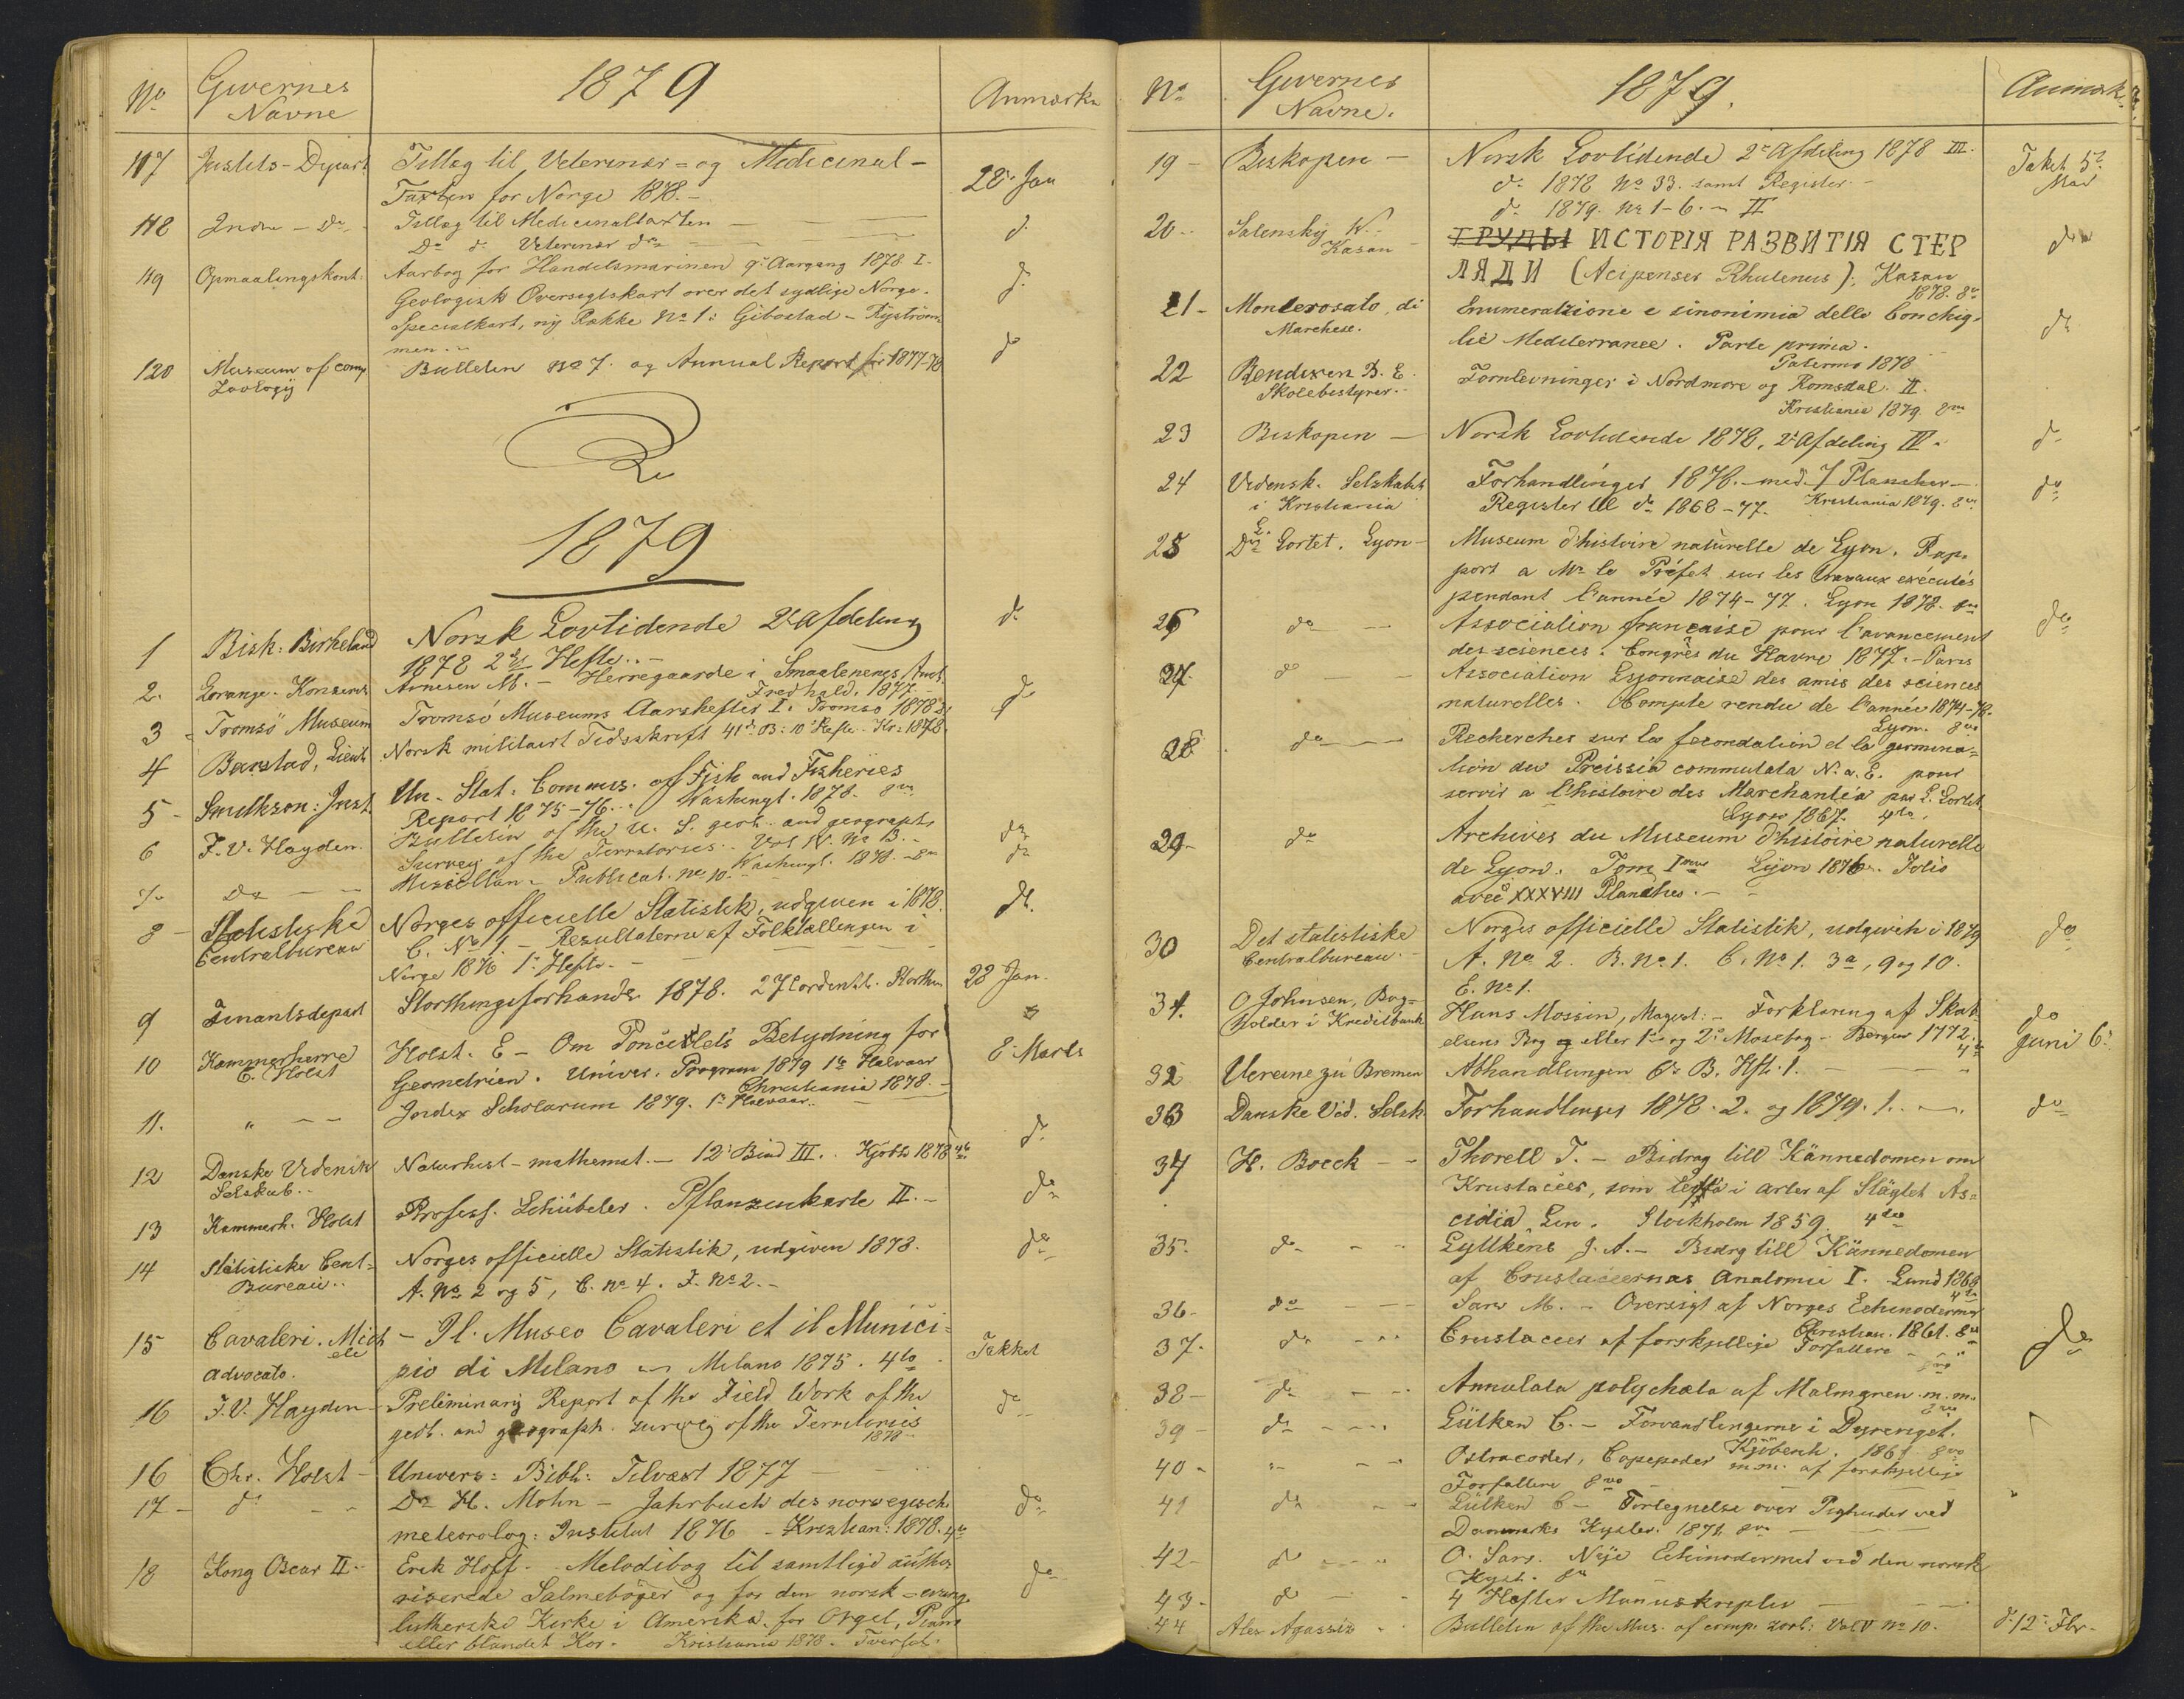 No Givernes Navne 1879 Anmærkn
117 Justits-Depart Tillæg til Veterinær- og Medicinal-
Taxten for Norge 1878.- 28. Jan
118 Indre - Do Tillæg til Medicinaltaxten - d.
Do d. Veterinær do
119 Opmaalingskont. Aarbog for Handelsmarinen 9. Aargang 1878. I. d.
Geologisk Oversigtskart over det sydlige Norge.
Specialkart, ny Række No 1: Gibostad -
120 Museum of comp Zoology Bulletin No 7. og Annual Report for 1877-78 do
1879
1 Bisk. Birkeland Norsk Lovtidende 2. Afdeling do
1878 2det Hefte.. -
2. Lorange. Konserv. Arnesen M. - Herregaarde i Smaalenenes Amt.
Fredhald. 1877 - do
3 Tromsö Museum Tromsö Museums Aarshefter I. Tromsö 1878
4 Lieut Norsk militært Tidsskrift 41de B: 10 Hefte. Kr. 1878.
5 - Smithson: Inst. Un. Stat. Commis. of Fish and Fisheries
Report 1875-76... Washingt. 1878. 8vo
6 F. V. Hayden. Bulletin of the U. S. geol. and geograph. do
Survey of the Territories. Vol IV. No 3. -
7. do - - Miscellan. Publicat. No 10. - Washingt. 1878. - 8vo do
8 - Statistiske Centralbureau Norges officielle Statistik, udgiven i 1878. do.
C. No 1 - Resultaterne af Folketællingen i
Norge 1876 1. Hefte. -
9 Finantsdepart Storthingsforhandl. 1878. 27 ordentl. Storthin 28 Jan.
10 Kammerherre C. Holst Holst. E - Om Poncelets Betydning for 8. Marts
Geometrien. Univer. Program 1879 1ste Halvaar
Christiania 1878. -
11. " - - Index Scholarum 1879. 1. Halvaar..
12 Danske Vidensk Selskab.. Naturhist-mathemat. - 12. Bind III.. Kjöbh 1878 4to do
13 Kammerh. Holst Profess. Schübeler. Pflanzenkarte II. - do
14 Statistiske Cent-Bureau.. Norges officielle Statistik, udgiven 1878. do
A. No 2 og 5, C. No 4. F. No 2. -
15 Cavaleri. Michele advocato. - Il Museo Cavaleri et il Munici-
pio di Milano - Milano 1875. 4to Takket
16 F. V. Hayden - Preliminary Report of the Field Work of the do
geol. and geograph. survey of the Territories
1878
16 Chr. Holst - Univers: Bibl: Tilvæxt 1877
17 - do - - Dr H. Mohn - Jahrbuch des norwegisch. do
meteorolog: Institut 1876 - Kristian: 1878. 4to
18 Kong Oscar II - Erik Hoff. - Melodibog til samtlige autho
riserede Salmebøger og for den norsk-evang. do
lutherske Kirke i Amerika. for Orgel, Piano
eller blandet Kor. - Kristiania 1878. Tverfol.
No Givernes Navne. 1879. Anmærk.
19 - Biskopen - Norsk Lovtidende 2. Afdeling 1878 III. Taket 5. Mai
do 1878 No 33. samt Register -
do 1879. No 1-6. - II
20 - Salensky W. Kasan - ТРУДЫ ИСТОРІЯ РАЗВИТІЯ СТЕР do
ЛЯДИ (Acipenser Rhutenus). Kasan
1878. 8vo
21 - Monterosato, di Marchese. Enumerazione e sinonimia delle Conchig- do
lie Mediterranee. Parte prima.
Palermo 1878
22 Bendixen B. E. Skolebestyrer. Fornlevninger i Nordmøre og Romsdal. II.
Kristiania 1879. 8vo
23 Biskopen - Norsk Lovtidende 1878, 2. Afdeling IV. do
24 Vidensk. Selskabet i Kristiania Forhandlinger 1878. med 7 Plancher - do
Register til do 1868-77. Kristiania 1879. 8vo
25 Dr L. Lortet. Lyon - Museum d'histoire naturelle de Lyon. Rap-
port a Mr le Préfet sur les travaux exécutés
pendant l'année 1874-77. Lyon 1878. 8vo
26 do - - Association française pour l'avancement do
des sciences. Congrès du Havre 1877. - Paris
27. do - Association Lyonnaise des amis des sciences
naturelles. Compte rendu de l'année 1874-78.
Lyon. 8vo
28 do - - Recherches sur la fecondation et la germina-
tion du Preissia commutata N. a. E. pour
servir a l'histoire des Marchantia par L. Lortet
Lyon 1867. 4to.
29 - do Archives du Museum d'histoire naturelle
de Lyon. Tome Ime Lyon 1876. Folio
avec XXXVIII Planches. -
30 Det statistiske Centralbureau. - Norges officielle Statistik, udgiven i 1879 do
A. No 2. B. No 1. C. No 1. 3a, 9 og 10.
E. No 1.
31. O Johnsen, Bog-holder i Kreditbank Hans Mossin, Magist: - Forklaring af Skab- do
elsens Bog eller 1. og 2. Mosebog - Bergen 1772. 4to Juni 6.
32 Vereine zu Bremen Abhandlungen 6. B. Hft. 1.
33 Danske Vid. Selsk Forhandlinger 1878. 2. og 1879. 1. do
34 H. Boeck - - Thorell T. - Bidrag till Kännedomen om
Krustaceer, som lefva i arter af Slägtet As-
cidia Lin. Stockholm 1859. 4to
35. do - - Lyttkens J. A. - Bidrg till Kännedomen
af Crustaceernas Anatomie I. Lund 1868
4to
36 - do - - Sars M. - Oversigt af Norges Echinodermer
Christian. 1861. 8vo
37. do - - Crustaceer af forskjellige Forfattere - 8vo do
38 - do - - Annulata polychæta af Malmgren m.m.
8vo
39 - do - - Lütken C. - Forvandlingerne i Dyreriget.
Kjöbenh. 1861 8vo
40 - " - - Ostracoder, Copepoder m.m. af forskjellige
Forfattere 8vo
41 do - - Lütken C - Fortegnelse over Pighuder ved
Danmarks Kyster. 8vo
42 - do - - O. Sars. Nye Echinodermer ved den norske
Kyst. 8vo
43 - do - 4 Hefter Manuskripter -
44 Alex Agassiz - Bulletin of the Mus. of comp. zool: Vol V No 10. d. 12. Fbr.